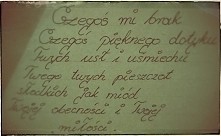 Czegoś mi brak
Czegoś pięknego dotyku
Twych ust i uśmiechu
Twego twych pieszczot
słodkich jak miód
Twojej obecności i Twojej
miłości